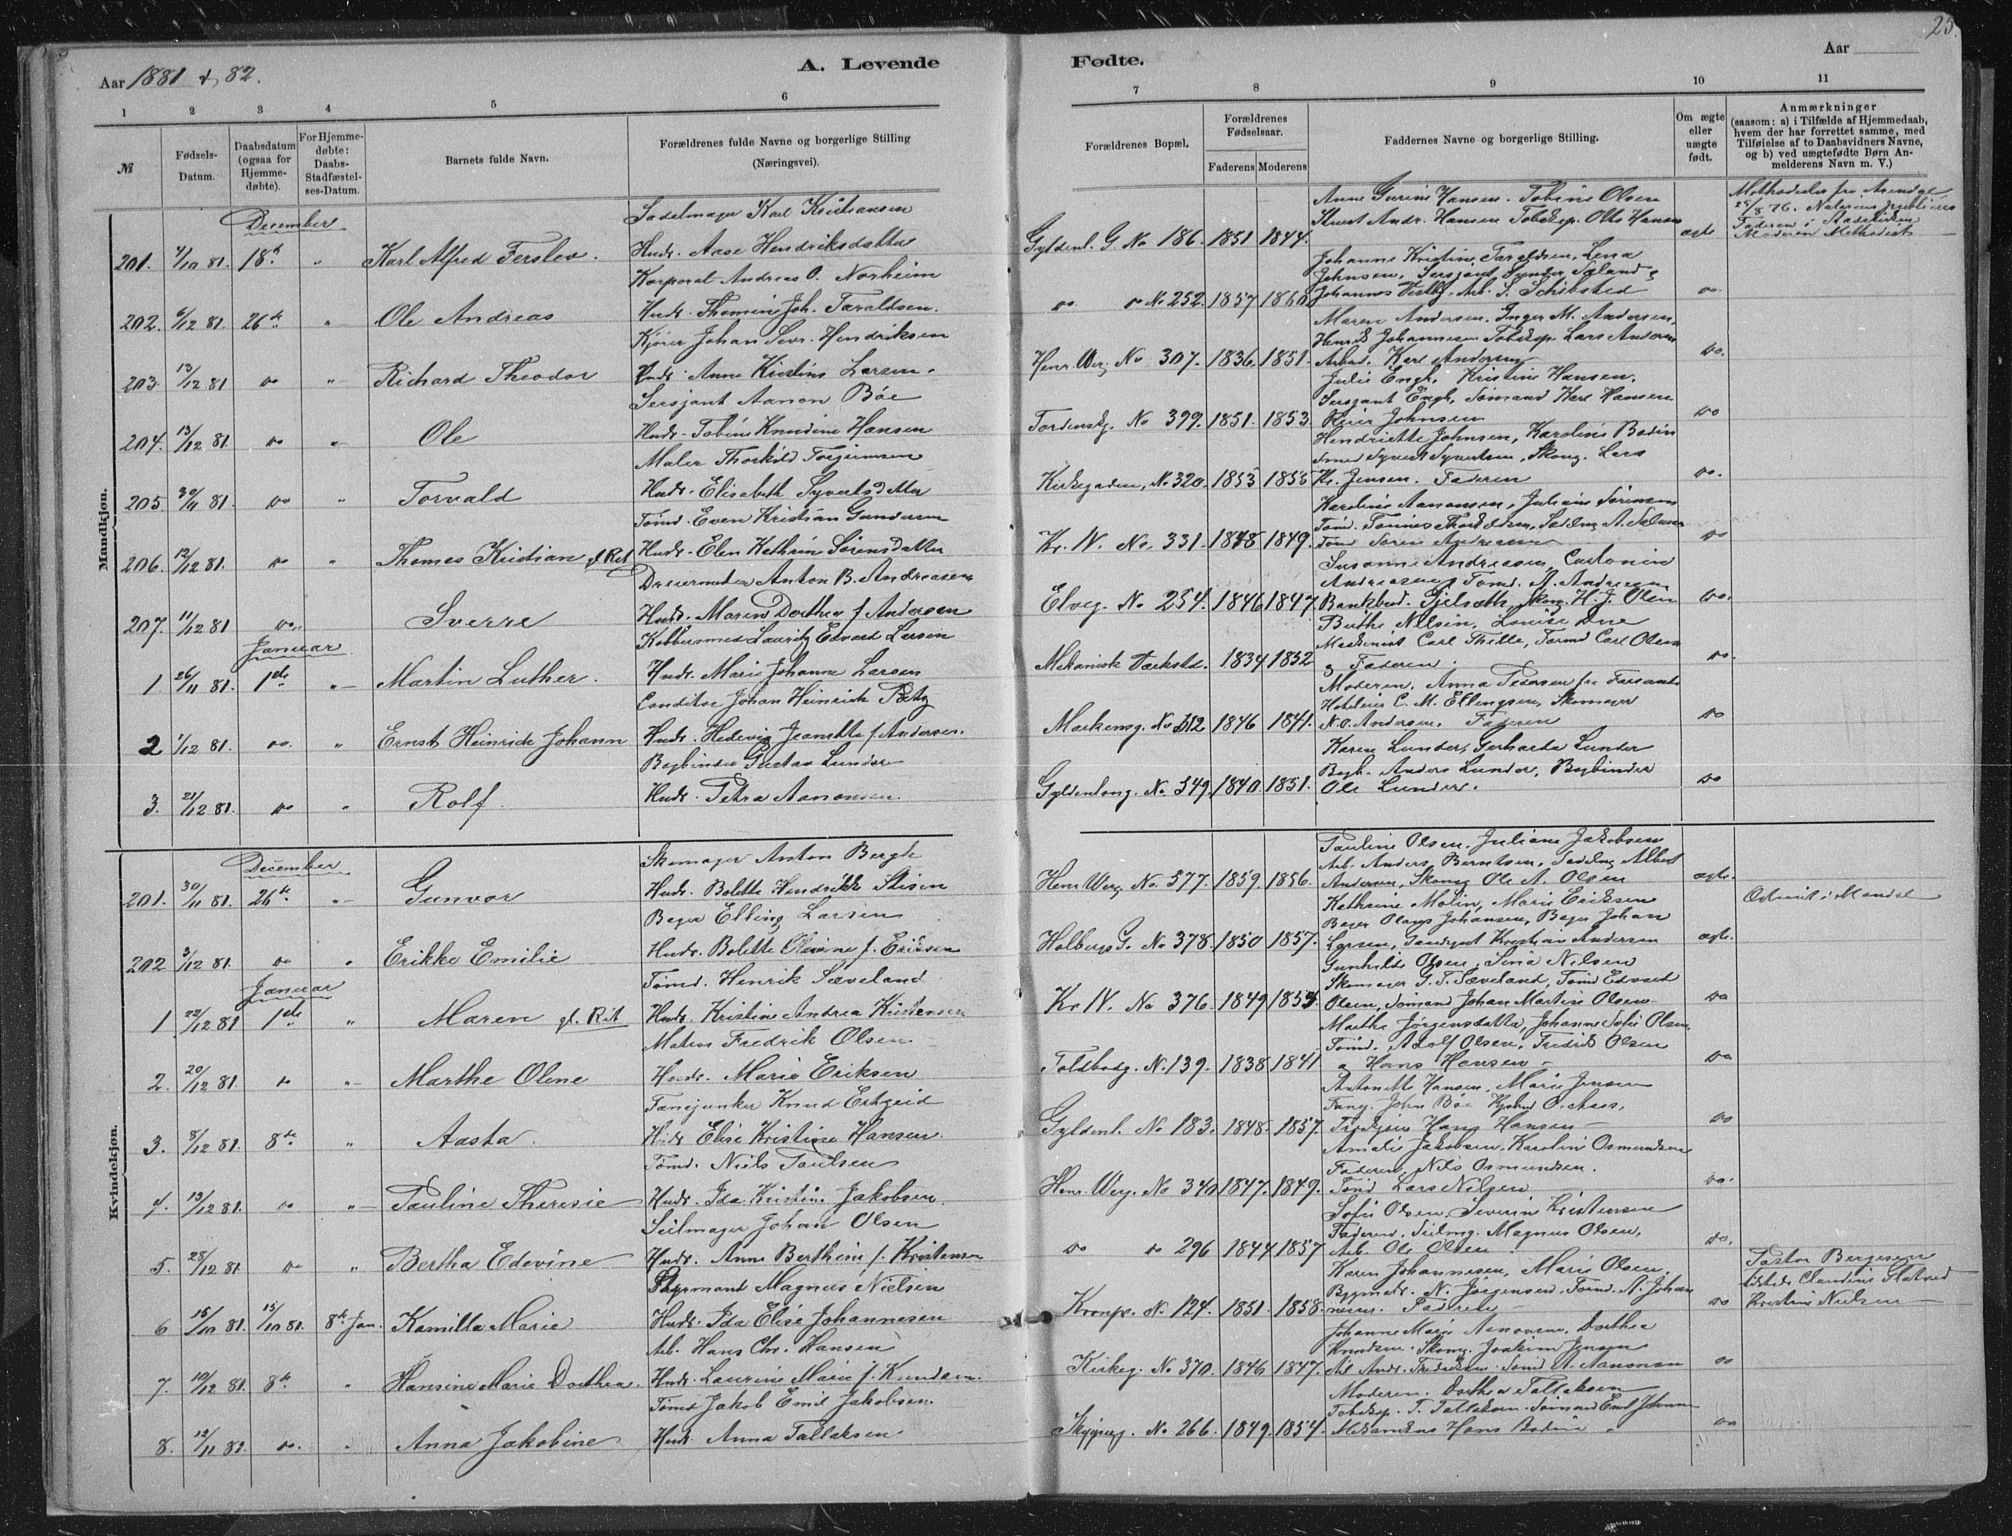 25.
Aar 1881 & 82.
A. Levende
Fødte.
Aar
1 2 3 4 5 6 7 8 9 10 11
№
Fødsels-Datum.
Daabsdatum (ogsaa for Hjemmedøbte).
For Hjemmedøbte: Daabs-Stadfæstelses-Datum.
Barnets fulde Navn.
Forældrenes fulde Navne og borgerlige Stilling (Næringsvei).
Forældrenes Bopæl.
Forældrenes Fødselsaar.
Faderens Moderens
Faddernes Navne og borgerlige Stilling.
Om ægte eller uægte født.
Anmærkninger
(saasom: a) i Tilfælde af Hjemmedaab, hvem der har forrettet samme, med Tilføielse af to Daabsvidners Navne, og b) ved uægtefødte Børn Anmelderens Navn m. V.)
Mandkjøn.
December
Sadelmager Karl Kristiansen
201. 7/10 81. 18de " Karl Alfred Ferslev. Hustr. Aase Hendriksdatter
Gyldenl. G No 186. 1851 1844.
Anne Hansen. Tobine Olsen
Andr. Hansen Otto Hansen
ægte
Korporal Andreas O. Norheim
202. 6/12 81. 26de " Ole Andreas Hustr. Thomine Joh. Taraldsen.
do do No 252. 1857 1860
Johanne Kristin Taraldsen, Lena
Johnsen, Sersjant
Johannes Arb. S. Schibsted
do.
Kjører Johan Sevr. Hendriksen
203. 13/12 81 do " Richard Theodor Hustr. Anne Kristine Larsen.
Henr. Werg. No. 307. 1836 1851.
Maren Andersen. Inger M. Andersen,
Johannesen Lars Andersen
Arbd. Karl Andersen
do.
Sersjant Aanon Bøe
204. 13/12 81. do " Ole Hustr. Tobine Knudine Hansen
Tordenskj. No 399. 1851. 1853
Julie Engh, Kristine Hansen.
Sersjant Engh, Sømand Karl Hansen
Reier Johnsen
do
Maler Thorkild Torjussen
205. 30/11 81. do " Torvald Hustr. Elisabeth Syvertsdatter
Kirkegaden, No 320. 1853 1855
Henriette Johnsen, Karoline Bodin
Syvert Syvertsen, Skomg. Lars
Kr. Jensen. Faderen
do.
Tømd. Even Kristian Gundersen
206. 12/12 81. do " Thomas Kristian gl. Rit Hustr. Elen Kathrin Sørensdatter
Kr. IV. No. 331. 1848 1849.
Tømd Søren Andreasen
do
Dreiermester Anton B. Andreasen
207. 11/12 81 do. Sverre Hustr. Maren Dorthea f. Andersen
Elveg. No. 234. 1846 1847.
Susanne Andreassen, Cartonin
Andreasen, Tømd. A. Andersen
H. J. Olsen
do.
Januar
Kobbersmed Lauritz Edvard Larsen
1 26/11 81. 1ste " Martin Luther. Hustr. Marie Johanne Larsen
Mekanisk Værksted. 1834 1852
Berthe Nilsen, Louise Due
Maskinist Carl Thelle, Tømd Carl Olsen
& Faderen.
do.
Conditor Johan Heinrich
2 1/12 81. do. " Ernst Heinrich Johann Hustr. Hedevig Jeanette f. Andersen.
Markensg. No 512 1846 1841.
Moderen. Anna Pedersen fra Farsund
Hotelier C. M. Ellingsen, Skomager
N. O. Andersen. Faderen
do
Bogbinder Gustav Lunder
3. 21/12 81. do " Rolf. Hustr. Petra Aanonsen.
Gyldenløvg. No 349. 1840. 1851.
Karen Lunder, Gerharda Lunder
Bogb. Anders Lunder, Bogbinder
Ole Lunder.
do
Kvindekjøn.
December
Skomager Anton Bergh
201. 30/11 81. 26de " Gunvor Hustr. Bolette Hendrikke Stisen
Henr. Werg. No. 377. 1859. 1856.
Pauline Olsen. Juliane Jakobsen
Arb. Anders Berntsen, Sadelmg Albert
Andersen, Skomg Ole A. Olsen
ægte.
i Mandal
Bager Elling Larsen
202 3/12 81. do " Erikke Emilie Hustr. Bolette Olivine f. Eriksen
Holbergs G. No 378. 1850 1857.
Kathrine Molin, Marie Eriksen
Bager Olaus Johansen, Bager Johan
Larsen, Kristian Andersen
ægte.
Januar
Tømd. Henrik Sæveland
1 22/12 81 1ste " Maren gl. Rit Hustr. Kristine Andrea Kristensen
Kr IV. No 376. 1849 1854
Gunhilde Olsen, Sina Nilsen
Skomager G. T. Sæveland, Tømd Edvard
Olsen, Sømand Johan Martin Olsen
do
Matros Fredrik Olsen.
2. 20/12 81. do " Marthe Olene Hustr. Marie Eriksen
Toldbodg. No. 139. 1838 1841
Marthe Jørgensdatter, Johanne Sofie Olsen,
Tømd. Adolf Olsen, Fredrik Olsen
& Hans Hansen
do
Fanejunker Knud Ertzeid
3. 8/12 81. 8de " Aasta. Hustr. Elise Kristine Hansen.
Gyldenl. No 183. 1848. 1857.
Antonette Hansen, Marie Jensen
John Bøe
Hans Hansen
do
Tømd. Niels Paulsen
4. 13/12 81. do " Pauline Theresie Hustr. Ida Kristine Jakobsen
Henr. Werg. No 340 1847. 1849.
Amalie Jakobsen, Karoline Osmundsen
Faderen, Nils Osmundsen.
Tømd Lars Nilsen
do.
Seilmager Johan Olsen
5. 28/12 81. do " Bertha Edevine Hustr. Anne Berthine f. Kristensen
do do 296 1844 1857
Sofie Olsen, Severine Kristensen
Faderen, Seilmg. Magnus Olsen,
Arb. Ole Olsen
do.
Styrmand Magnus Nielsen
6 15/10 81. 15/10 81. 8de Jan. Kamilla Marie Hustr. Ida Elise Johannesen
Kronpr. No. 124. 1851. 1858.
Karen Johannesen, Marie Olsen,
Bygmstr. N. Jørgensen, Tømd. A. Johan
nesen. Faderen
do
Pastor Bergesen
Claudine Flatrød
Kristine Nielsen
Arb. Hans Chr. Hansen
7. 10/12 81. 8de " Hansine Marie Dorthea. Hustr. Laurine Marie f. Knudsen.
Kirkeg. No 370. 1846 1847.
Johanne Marie Aanonsen, Dorthea
Knudsen. Skomg. Joakim Jensen
Arb Andr. Fredriksen. Tømd A. Aanonsen
do
Tømd Jakob Emil Jakobsen.
8. 12/11 81. do. " Anna Jakobine Hustr. Anna Tallaksen.
Skipperg. No 266. 1849. 1854.
Moderen. Dorthea Tallaksen
T. Tallaksen. Sømand Emil Johnsen
Mekanikus Hans Bodin
do